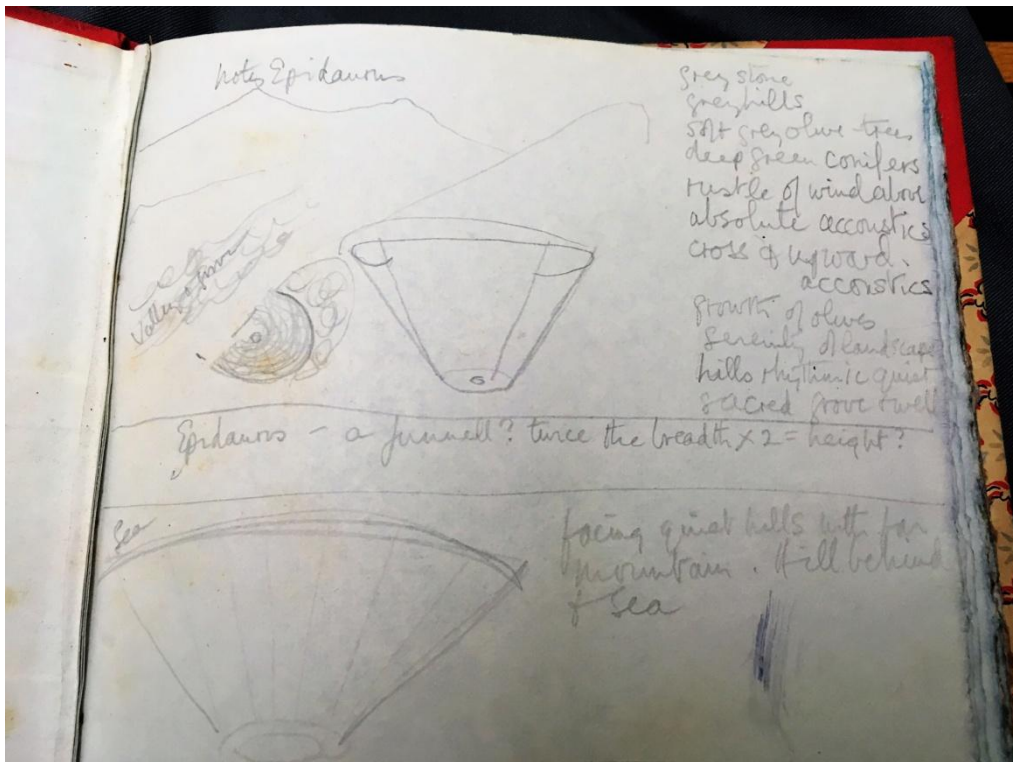 notes Epidauros
grey stone
grey hills
soft grey olive trees
deep green conifers
rustle of wind above
absolute accoustics
cross & upward.
accoustics
growth of olives
Serenity of landscape
hills rhythmic quiet
sacred grove & well
Valley
Epidauros – a funnell? twice the breadth x 2 = height?
Sea
facing quiet hills with far
mountain. Hill behind
& Sea